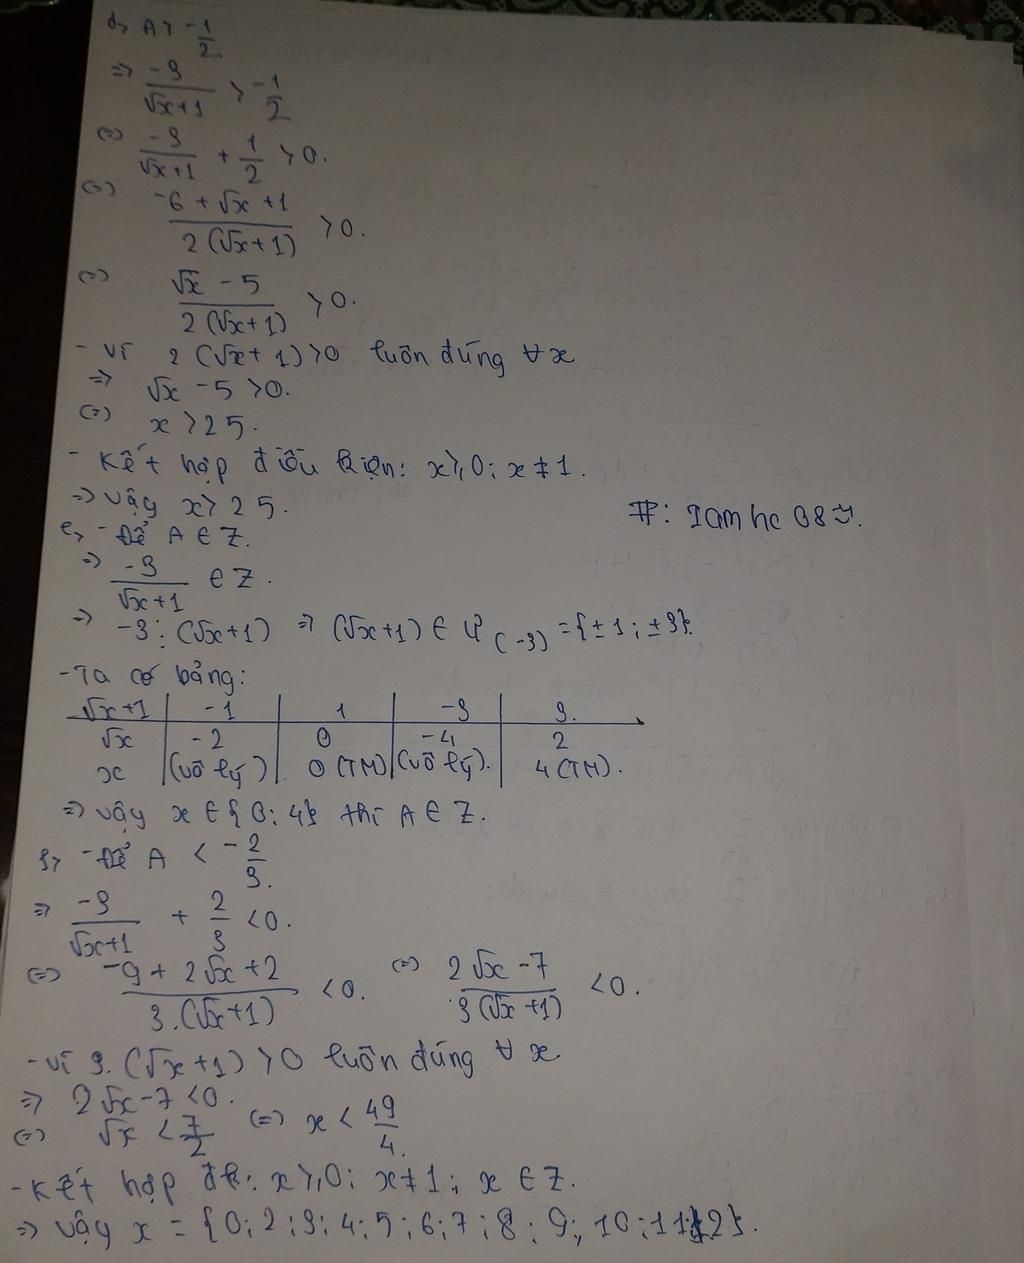 d, A > -1/2
=> -3/(√x+1) > -1/2
(=) -3/(√x+1) + 1/2 > 0.
(=) (-6 + √x + 1)/(2(√x+1)) > 0.
(=) (√x - 5)/(2(√x+1)) > 0.
- Vì 2(√x+1) > 0 luôn đúng ∀x
=> √x - 5 > 0.
(=) x > 25.
- Kết hợp điều kiện: x ≥ 0; x ≠ 1.
=> Vậy x > 25.
#: Iamhc08
e, - Để A ∈ Z.
=> -3/(√x+1) ∈ Z.
=> -3 ⋮ (√x+1) => (√x+1) ∈ Ư(-3) = {±1; ±3}.
- Ta có bảng:
√x+1 | -1 | 1 | -3 | 3.
√x | -2 | 0 | -4 | 2
x | (vô lý) | 0 (TM) | (vô lý). | 4 (TM).
=> Vậy x ∈ {0; 4} thì A ∈ Z.
f, - Để A < -2/3.
=> -3/(√x+1) + 2/3 < 0.
(=) (-9 + 2√x + 2)/(3.(√x+1)) < 0. (=) (2√x - 7)/(3(√x+1)) < 0.
- Vì 3.(√x+1) > 0 luôn đúng ∀x
=> 2√x - 7 < 0.
(=) √x < 7/2 (=) x < 49/4.
- Kết hợp đk: x ≥ 0; x ≠ 1; x ∈ Z.
=> Vậy x = {0; 2; 3; 4; 5; 6; 7; 8; 9; 10; 11; 12}.